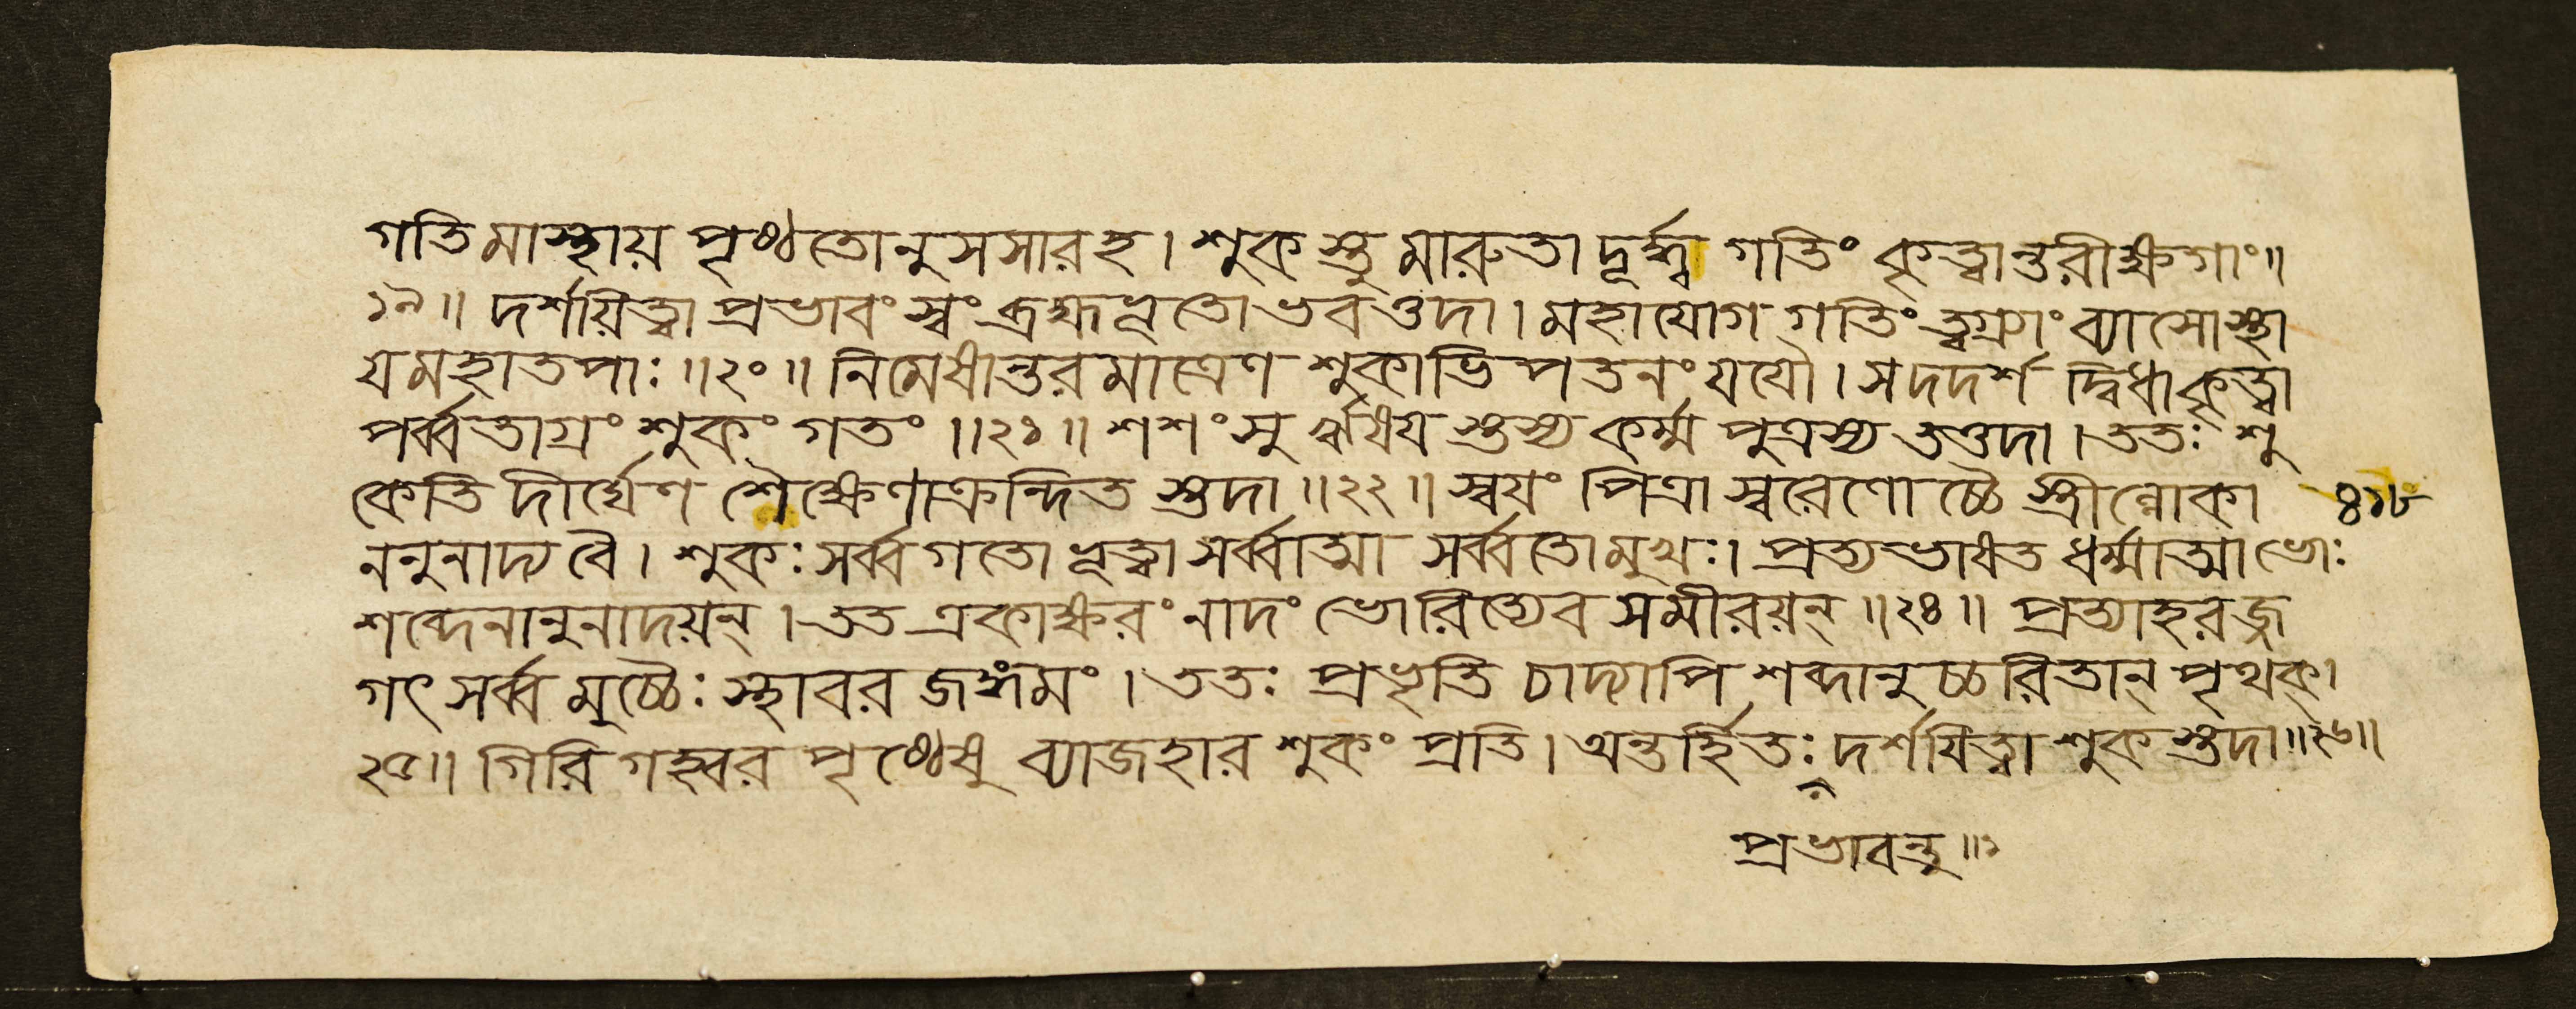 গতিমাস্থায় পৃষ্ঠতোনুসসারহ। শুকস্তু মারুতাদূর্দ্ধ্বা গতিং কৃত্বান্তরীক্ষগাং॥
১৯॥ দর্শয়িত্বা প্রভাবং স্বং ব্রহ্মভূতোভবত্তদা। মহাযোগগতিং ত্বগ্র্যাং ব্যাসোস্থা
যমহাতপাঃ॥২০॥ নিমেষান্তরমাত্রেণ শুকাভিপতনং যযৌ। সদদর্শ দ্বিধাকৃত্বা
পর্ব্বতাগ্রং শুকং গতং॥২১॥ শশংসুর্ঋষযস্তস্য কর্ম্ম পুত্রস্য তত্তদা। ততঃ শু
কেতি দীর্ঘেণ শৈক্ষেণাক্রন্দিতস্তদা॥২২॥ স্বয়ং পিত্রা স্বরেণোচ্চৈস্ত্রীন্লোকা
৪১৮
ননুনাদ্য বৈ। শুকঃ সর্ব্বগতো ভূত্বা সর্ব্বাত্মা সর্ব্বতোমুখঃ। প্রত্যভাষত ধর্ম্মাত্মা ভোঃ
শব্দেনানুনাদয়ন্। তত একাক্ষরং নাদং ভোরিত্যেব সমীরয়ন্॥২৪॥ প্রত্যাহরজ্জ
গৎ সর্ব্বমুচ্চৈঃ স্থাবরজঙ্গমং। ততঃ প্রভৃতি চাদ্যাপি শব্দানুচ্চরিতান্ পৃথক্।
২৫॥ গিরিগহ্বরপৃষ্ঠেষু ব্যাজহার শুকং প্রতি। অন্তর্হিতঃ দর্শযিত্বা শুকস্তদা॥২৬॥
প্রভাবন্তু॥